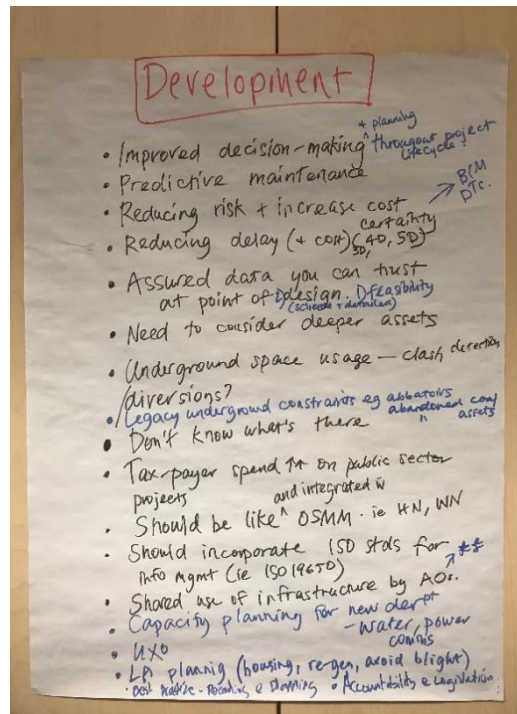 Development
• Improved decision-making ^ + planning throughout project lifecycle.
• Predictive maintenance
• Reducing risk + increase cost certainty
→ BIM DTs.
• Reducing delay (+ cost) (3D, 4D, 5D)
• Assured data you can trust
at point of design. feasibility
(scheme + detailed)
• Need to consider deeper assets
• Underground space usage — clash detection
/diversions?
• Legacy underground constraints eg abbatoirs
abandoned assets
• Don't know what's there
• Tax-payer spend ↑ on public sector
projects
• Should be like ^ and integrated w OSMM. ie HN, WN
• Should incorporate ISO stds for **
info mgmt (ie ISO 19650)
• Shared use of infrastructure by AOs.
• Capacity planning for new
- water, power
comms
• UXO
• LA (housing, re-gen, avoid blight)
• Best Practice - • Accountability e Legislation